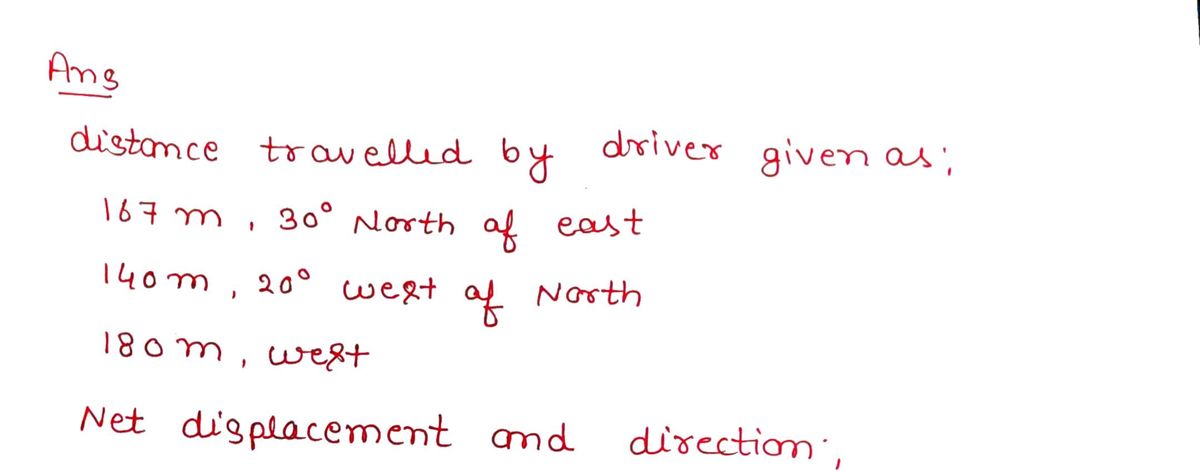 Ans
distance travelled by driver given as;
167 m, 30° North of east
140m, 20° west of North
180m, west
Net displacement and direction;